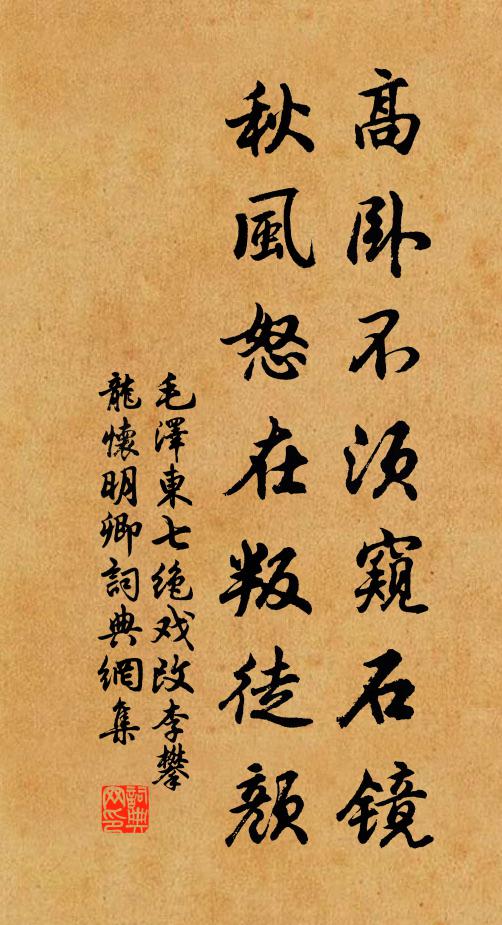 高卧不须窥石镜
秋風怒在叛徒顏
毛澤東七绝戏改李攀
龍懷明卿詞典網集
詞典网印